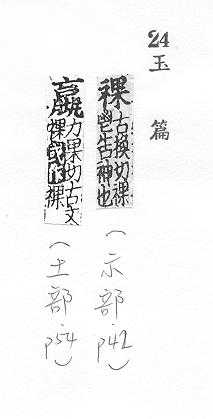 24 玉篇
祼 古換切祼
鬯告神也
(示部 p42)
臝 力果切古文
或作裸
(土部 p54)